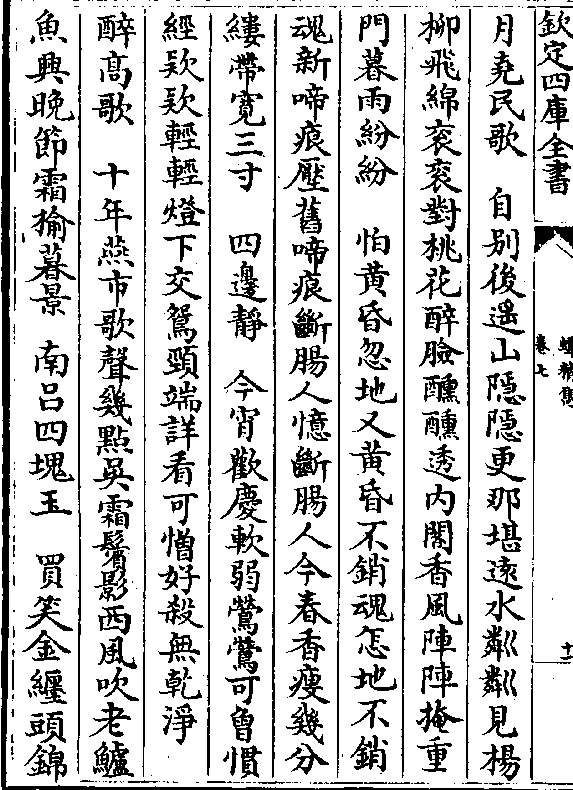 欽定四庫全書
卷七
十一
月堯民歌　自别後遥山隠隠更那堪遠水粼粼見楊
柳飛綿衮衮對桃花醉臉醺醺透内閣香風陣陣掩重
門暮雨紛紛　怕黄昏忽地又黄昏不銷魂怎地不銷
魂新啼痕壓舊啼痕斷腸人憶斷腸人今春香瘦幾分
縷帶寛三寸　四邊靜　今宵歡慶軟弱鶯鶯可曾慣
經欵欵輕輕燈下交鴛頸端詳看可憎好殺無乾淨
醉高歌　十年燕市歌聲幾點吳霜鬢影西風吹老鱸
魚興晚節霜揄暮景　南吕四塊玉　買笑金纒頭錦